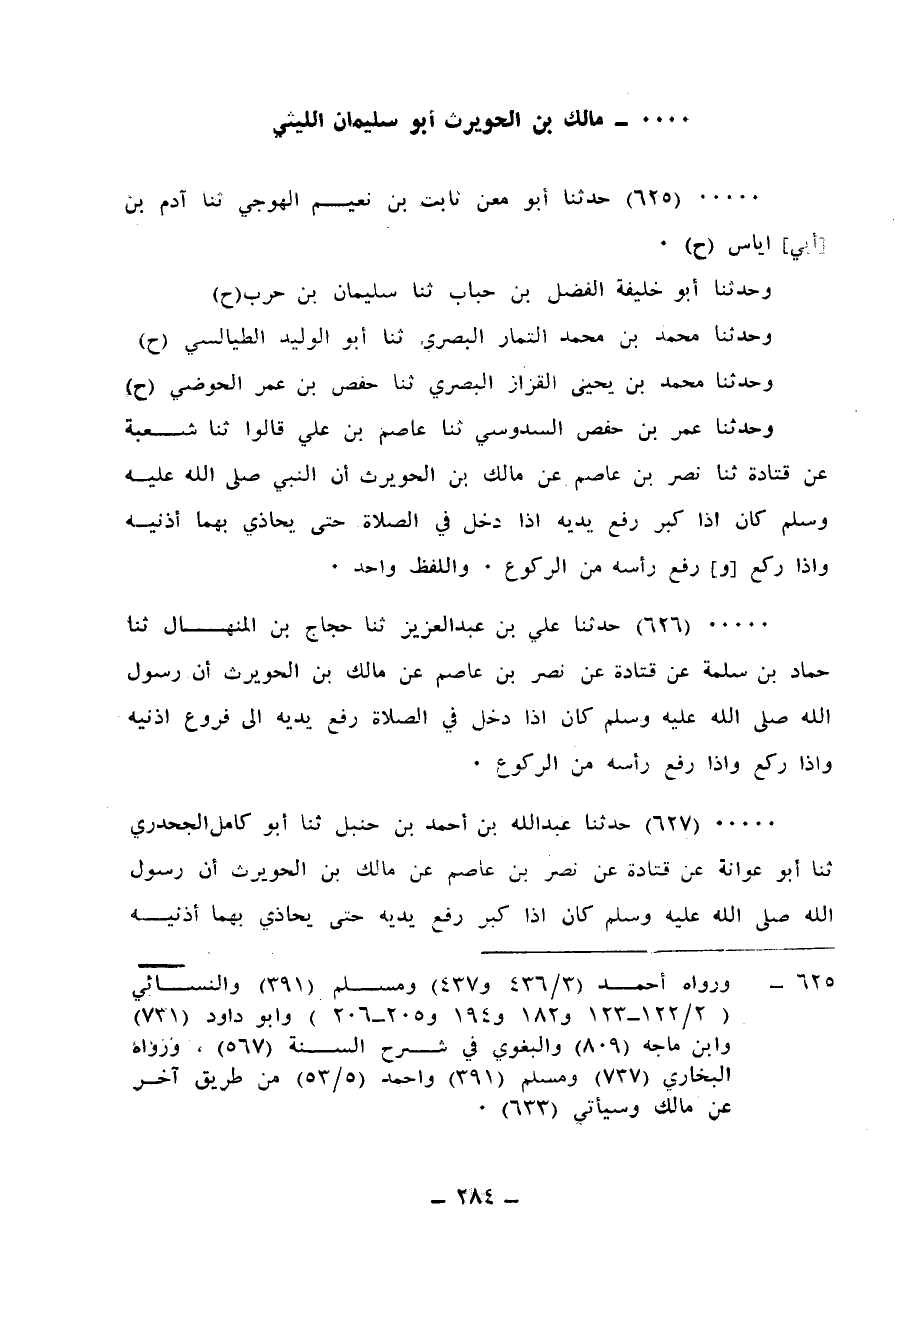 ٠٠٠٠ ـ مالك بن الحويرث أبو سليمان الليثي
٠٠٠٠٠ (٦٢٥) حدثنا أبو معن ثابت بن نعيم الهوجي ثنا آدم بن
[أبي] اياس (ح) ٠
وحدثنا أبو خليفة الفضل بن حباب ثنا سليمان بن حرب(ح)
وحدثنا محمد بن محمد التمار البصري ثنا أبو الوليد الطيالسي (ح)
وحدثنا محمد بن يحيى القزاز البصري ثنا حفص بن عمر الحوضي (ح)
وحدثنا عمر بن حفص السدوسي ثنا عاصم بن علي قالوا ثنا شعبة
عن قتادة ثنا نصر بن عاصم عن مالك بن الحويرث أن النبي صلى الله عليه
وسلم كان اذا كبر رفع يديه اذا دخل في الصلاة حتى يحاذي بهما أذنيه
واذا ركع [و] رفع رأسه من الركوع ٠ واللفظ واحد ٠
٠٠٠٠٠ (٦٢٦) حدثنا علي بن عبدالعزيز ثنا حجاج بن المنهال ثنا
حماد بن سلمة عن قتادة عن نصر بن عاصم عن مالك بن الحويرث أن رسول
الله صلى الله عليه وسلم كان اذا دخل في الصلاة رفع يديه الى فروع اذنيه
واذا ركع واذا رفع رأسه من الركوع ٠
٠٠٠٠٠ (٦٢٧) حدثنا عبدالله بن أحمد بن حنبل ثنا أبو كامل الجحدري
ثنا أبو عوانة عن قتادة عن نصر بن عاصم عن مالك بن الحويرث أن رسول
الله صلى الله عليه وسلم كان اذا كبر رفع يديه حتى يحاذي بهما أذنيه
٦٢٥ ـ ورواه أحمد (٤٣٦/٣ و٤٣٧) ومسلم (٣٩١) والنسائي
( ١٢٢/٢ـ١٢٣ و١٨٢ و١٩٤ و٢٠٥ـ٢٠٦ ) وابو داود (٧٣١)
وابن ماجه (٨٠٩) والبغوي في شرح السنة (٥٦٧) ، ورواه
البخاري (٧٣٧) ومسلم (٣٩١) واحمد (٥٣/٥) من طريق آخر
عن مالك وسيأتي (٦٣٣) ٠
ـ ٢٨٤ ـ